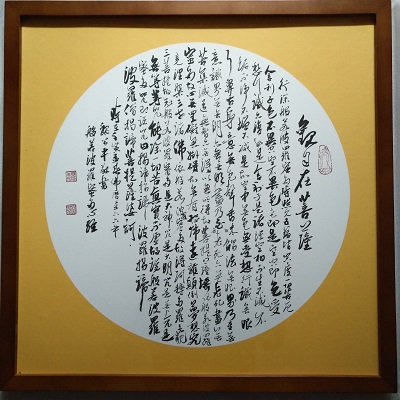 觀自在菩薩
行深般若波羅蜜多時照見五蘊皆空度一切苦厄
舍利子色不異空空不異色色即是空空即是色受
想行識亦復如是舍利子是諸法空相不生不滅不
垢不淨不增不減是故空中無色無受想行識無眼
耳鼻舌身意無色聲香味觸法無眼界乃至無
意識界無無明亦無無明盡乃至無老死亦無老死盡無
苦集滅道無智亦無得以無所得故菩提薩埵依般若波羅
蜜多故心無罣礙無罣礙故無有恐怖遠離顛倒夢想究
竟涅槃三世諸佛依般若波羅蜜多故得阿耨多羅三藐
三菩提故知般若波羅蜜多是大神咒是大明咒是無上咒是
無等等咒能除一切苦真實不虛故說般若波羅
蜜多咒即說咒曰揭諦揭諦波羅揭諦
波羅僧揭諦菩提薩婆訶
般若波羅蜜多心經